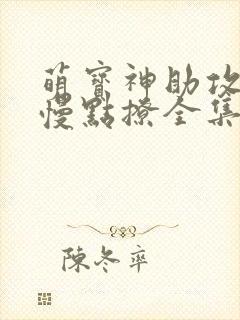 萌寶神助攻
慢點撩全集
陳冬率